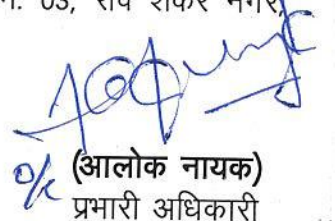 03, रवि शंकर नगर,
o/c (आलोक नायक)
प्रभारी अधिकारी